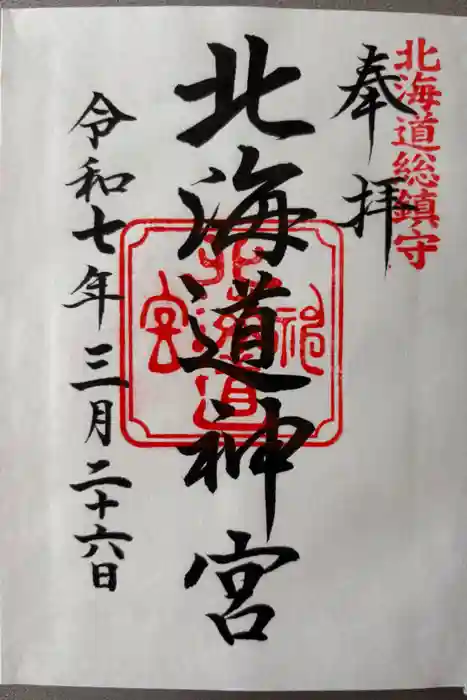 北海道総鎮守
奉拝
北海道神宮
令和七年三月二十六日
北海道神宮